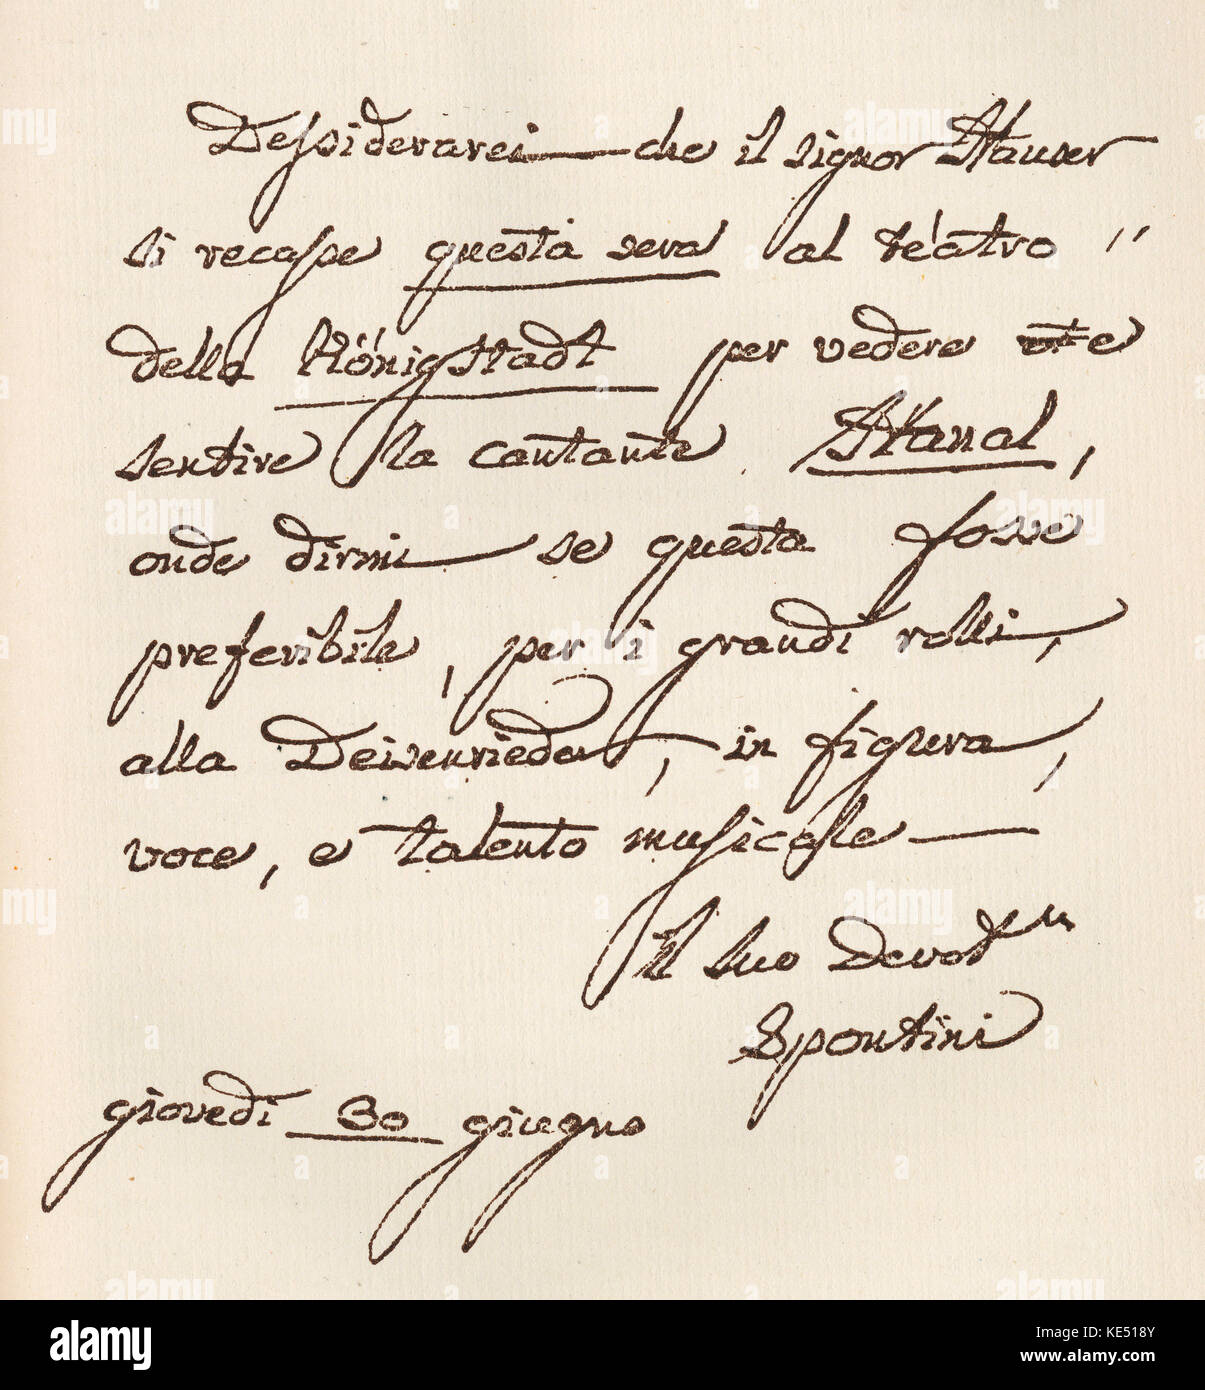 Dessiderarei che il signor Hauser
si recasse questa sera al teatro "
della Königstadt per vedere e
sentire la cantante Hanal,
onde dirmi se questa fosse
preferibile, per i grandi rolli,
alla Deisenrieder, in figura,
voce, e talento musicale
Il suo Devot.mo
Spontini
giovedi 30 giugno
alamy
Image ID: KE518Y
www.alamy.com